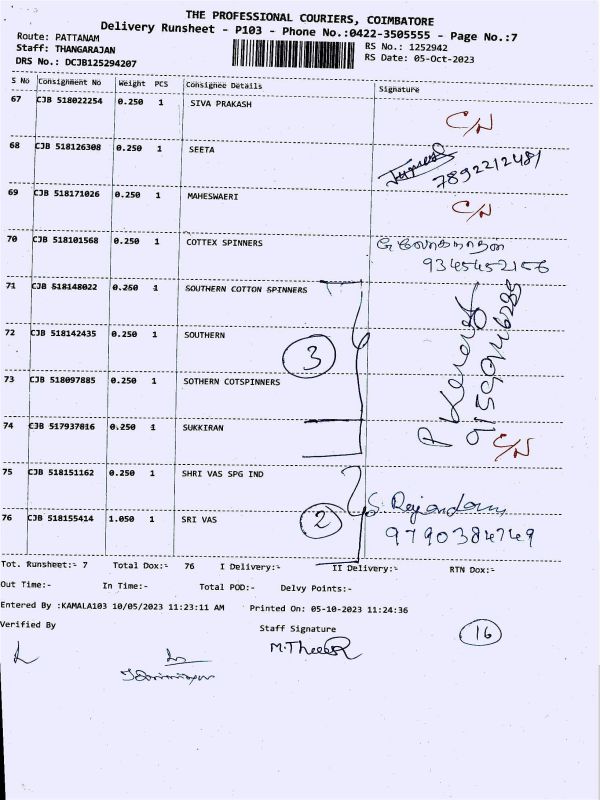 THE PROFESSIONAL COURIERS, COIMBATORE
Delivery Runsheet - P103 - Phone No.:0422-3505555 - Page No.:7
Route: PATTANAM
Staff: THANGARAJAN
DRS No.: DCJB125294207
RS No.: 1252942
RS Date: 05-Oct-2023
S No Consignment No Weight PCS Consignee Details Signature
67 CJB 518022254 0.250 1 SIVA PRAKASH C/N
68 CJB 518126308 0.250 1 SEETA 7892212481
69 CJB 518171026 0.250 1 MAHESWAERI C/N
70 CJB 518101568 0.250 1 COTTEX SPINNERS
9345452156
71 CJB 518148022 0.250 1 SOUTHERN COTTON SPINNERS
72 CJB 518142435 0.250 1 SOUTHERN
3
73 CJB 518097885 0.250 1 SOTHERN COTSPINNERS
74 CJB 517937016 0.250 1 SUKKIRAN C/N
75 CJB 518151162 0.250 1 SHRI VAS SPG IND
76 CJB 518155414 1.050 1 SRI VAS 2 9790384749
Tot. Runsheet:- 7 Total Dox:- 76 I Delivery:- II Delivery:- RTN Dox:-
Out Time:- In Time:- Total POD:- Delvy Points:-
Entered By :KAMALA103 10/05/2023 11:23:11 AM Printed On: 05-10-2023 11:24:36
Verified By Staff Signature 16